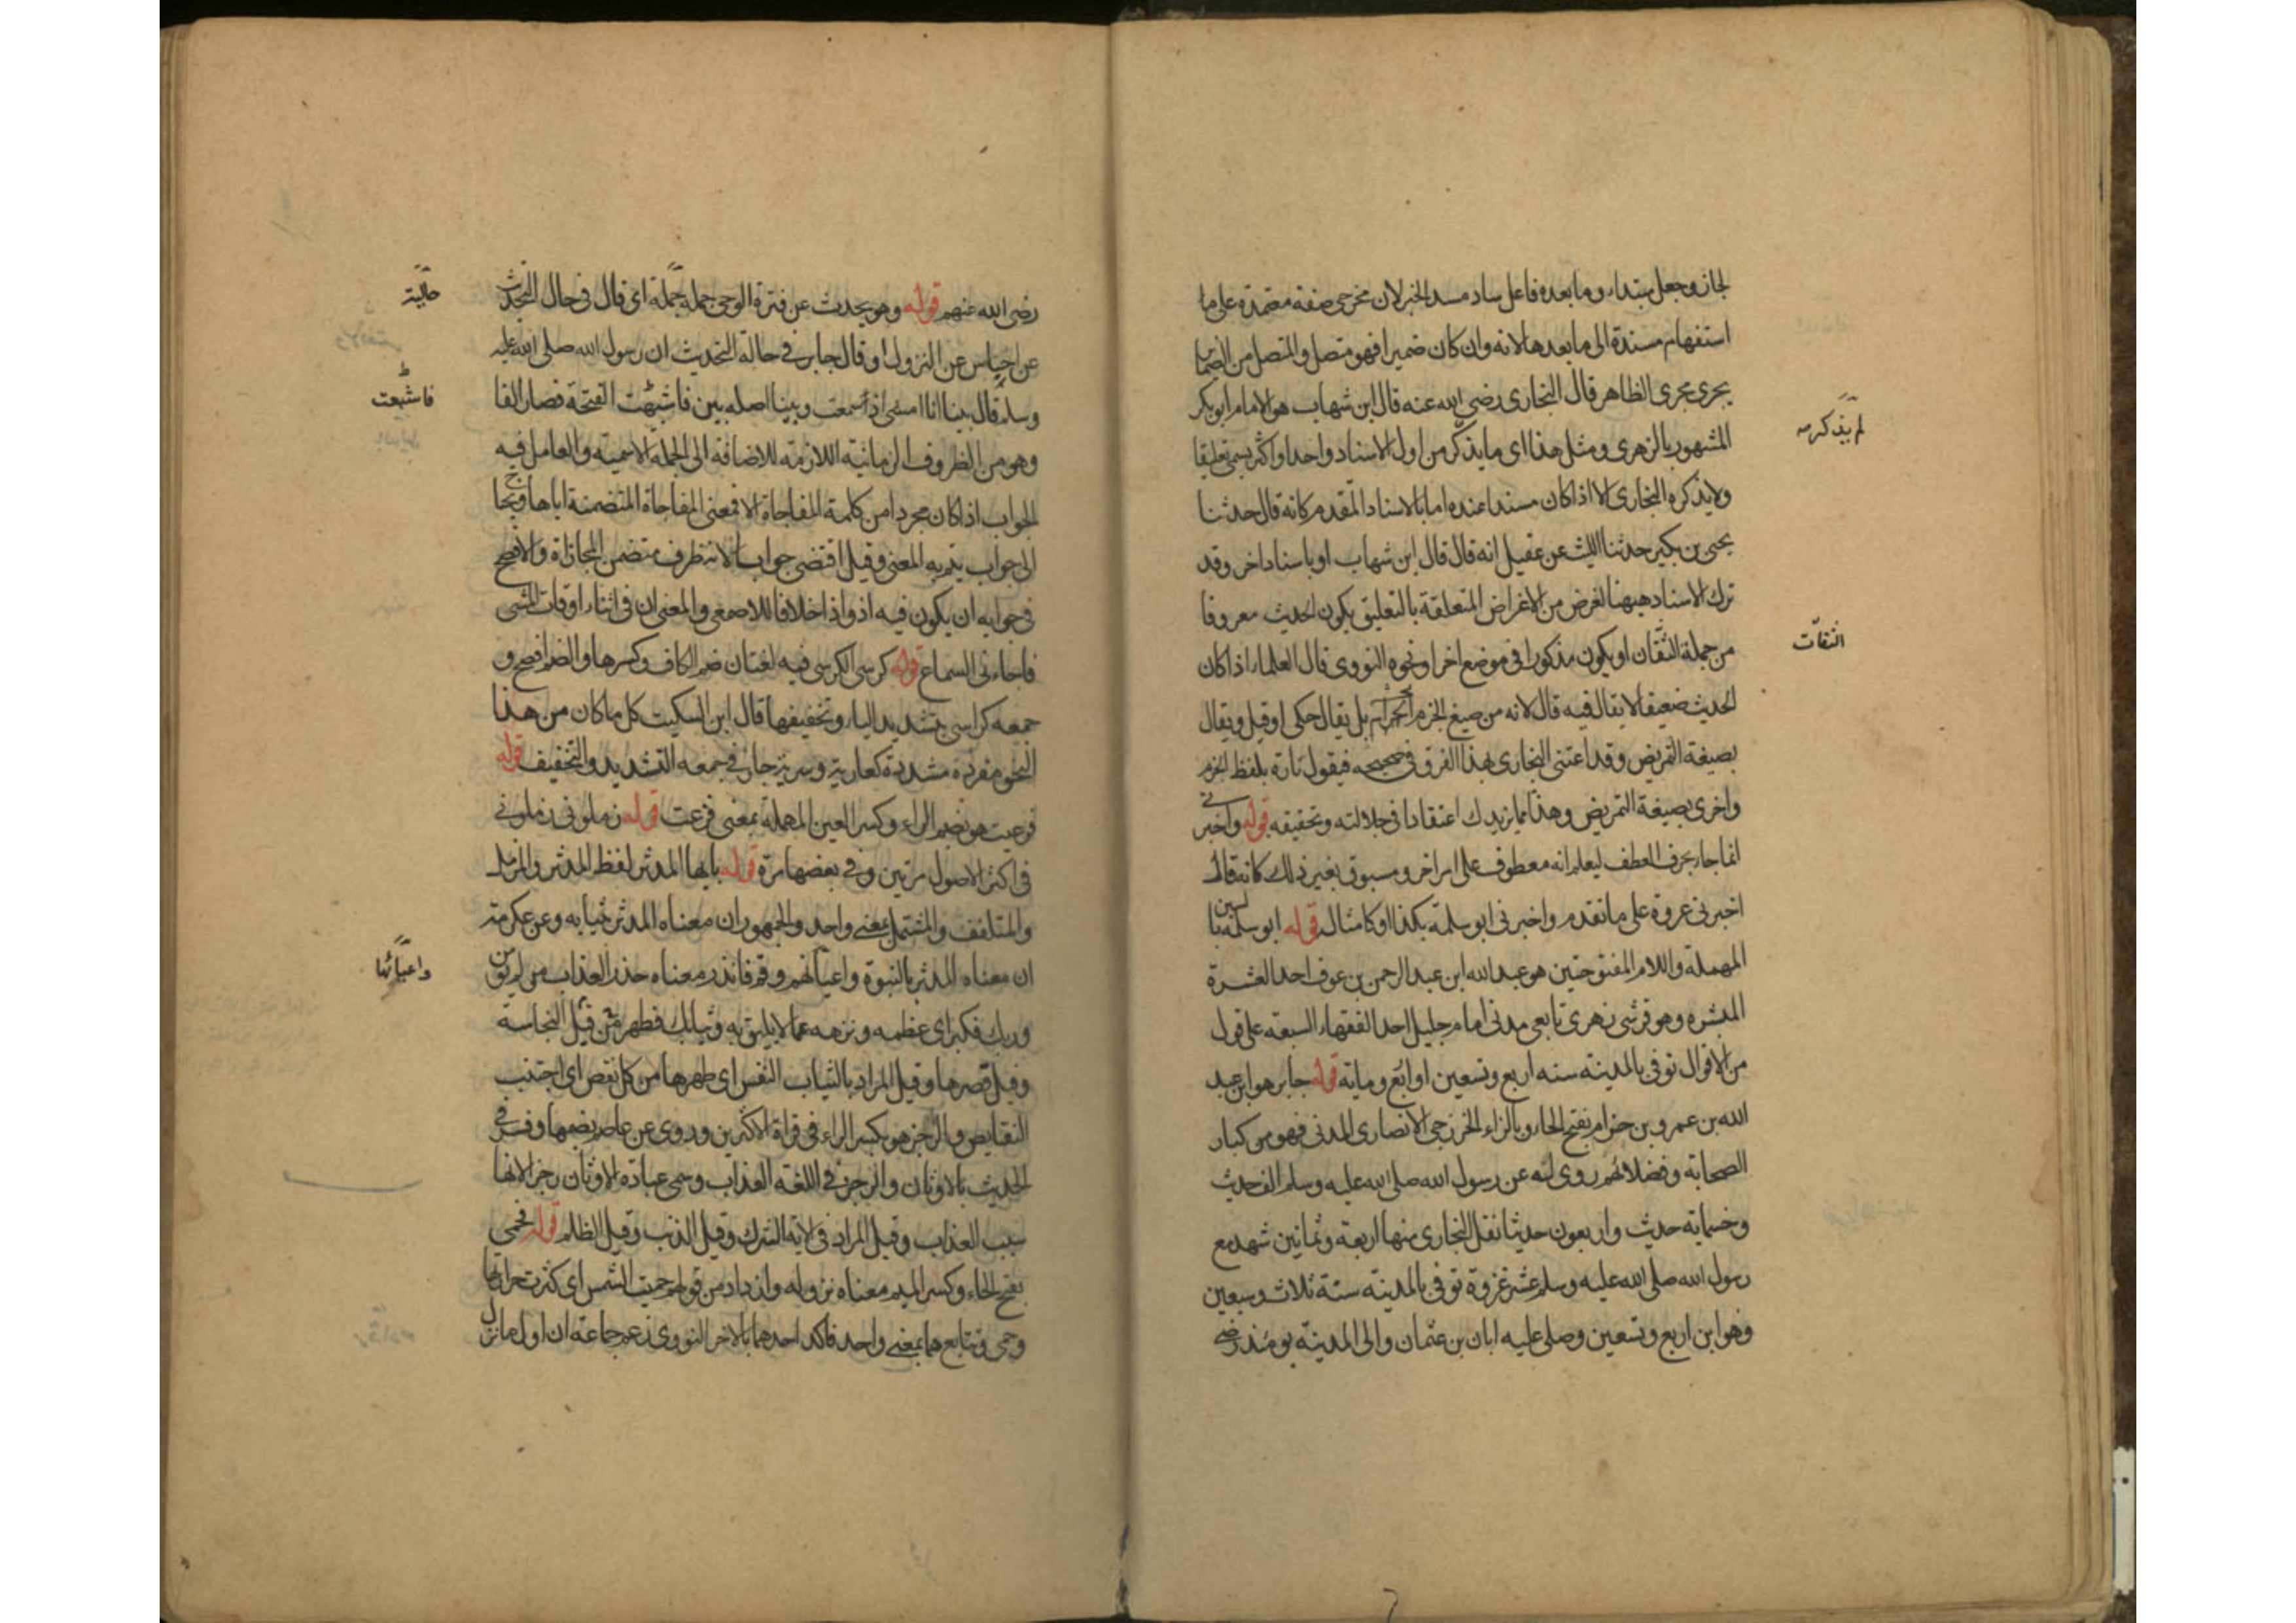 لجاز وجعل مبتداء وما بعده فاعل ساد مسد الخبر لان مخرجي صفة معتمدة على ما
استفهام مسندة الى ما بعدها لانه وان كان ضميرا فهو متصل والمتصل من الضما
يجرى مجرى الظاهر قال البخارى رضى الله عنه قال ابن شهاب هو الامام ابو بكر
لم يذكر مه
المشهور بالزهرى ومثل هذا اى ما يذكر من اول الاسناد واحدا واكثر يسمى تعليقا
ولا يذكره البخارى الا اذا كان مسندا عنده اما بالاسناد المقدم كانه قال حدثنا
يحيى بن بكير حدثنا الليث عن عقيل انه قال قال ابن شهاب او باسناد اخر وقد
ترك الاسناد ههنا لغرض من الاغراض المتعلقة بالتعليق بكون الحديث معروفا
الثقات
من جملة الثقان او يكون مذكورا فى موضع اخر او نحوه النووى قال العلماء اذا كان
الحديث ضعيفا لا يقال فيه قال لانه من صيغ الجزم بل يقال حكى او قيل ويقال
بصيغة التمريض وقد اعتنى البخارى بهذا الفرق فى صحيحه فيقول تارة بلفظ الجزم
واخرى بصيغة التمريض وهذا مما يزيدك اعتقادا فى جلالته وتحقيقه قوله واخبرنى
انما جاء بحرف العطف ليعلم انه معطوف على امر اخر ومسبوق بغير ذلك كانه قال
اخبرنى عروة على ما تقدم واخبرنى ابو سلمة بكذا او كامثال قوله ابو سلمة بالسين
المهملة واللام المفتوحتين هو عبد الله ابن عبد الرحمن بن عوف احد العشرة
المبشره وهو قرشى زهرى تابعى مدنى امام جليل احد الفقهاء السبعة على قول
من الاقوال توفى بالمدينة سنه اربع وتسعين او اربع وماية قوله جابر هو ابن عبد
الله بن عمرو بن حزام بفتح الحاء وبالزاء الخزرجى الانصارى المدنى فهو من كبار
الصحابة وفضلائهم روى له عن رسول الله صلى الله عليه وسلم الف حديث
وخمسماية حديث واربعون حديثا نقل البخارى منها اربعة وثمانين شهد مع
رسول الله صلى الله عليه وسلم عشر غزوة توفى بالمدينة سنة ثلاث وسبعين
وهو ابن اربع وتسعين وصلى عليه ابان بن عثمان والى المدينة يومئذ رضى
رضى الله عنهم قوله وهو يحدث عن فترة الوحى جملة جملة اى قال فى حال التحدث
حالية
عن احتباس عن النزول او قال جابر فى حالة التحديث ان رسول الله صلى الله عليه
وسلم قال بينا انا امشى اذ سمعت وبينا اصله بين فاشبهت الفتحة فصار الفا
فاشبعت
وهو من الظروف الزمانية اللازمة للاضافة الى الجملة الاسمية والعامل فيه
الجواب اذا كان مجردا من كلمة المفاجاة الا فمعنى المفاجاة المتضمنة اياها ويحتاج
الى جواب يتم به المعنى وقيل اقتضى جوابا لانه ظرف متضمن المجازاة والافصح
فى جوابه ان يكون فيه اذ واذا خلافا للاصمعى والمعنى ان فى اثناء اوقات المشى
فاجاءنى السماع قوله كرسى الكرسى فيه لغتان ضم الكاف وكسرها والضم افصح و
جمعه كراسى بتشديد الياء وتخفيفها قال ابن السكيت كل ما كان من هذا
النحو مفرده مشددة كعارية وسرية جاز فى جمعه التشديد والتخفيف قوله
فرعبت هو بضم الراء وكسر العين المهملة بمعنى فزعت قوله زملونى زملونى
فى اكثر الاصول مرتين وفى بعضها مرة قوله يا ايها المدثر لفظ المدثر والمزمل
والمتلفف والمشتمل بمعنى واحد والجمهور ان معناه المدثر بثيابه وعن عكرمة
ان معناه المدثر بالنبوة واعيائهم وقم فانذر معناه حذر العذاب من لم يؤمن
واعبائها
وربك فكبر اى عظمه ونزهه عما لا يليق به وثيابك فطهر من قيل النجاسة
وقيل قصرها وقيل المراد بالثياب النفس اى طهرها من كل نقص اى اجتنب
النقايص والرجز هو بكسر الراء فى قراة الاكثرين وروى عن عاصم بضمها وفسر فى
الحديث بالاوثان والرجز فى اللغة العذاب وسمى عبادة الاوثان رجزا لانها
سبب العذاب وقيل المراد فى الاية الشرك وقيل الذنب وقيل الظلم قوله فحمى
بفتح الحاء وكسر الميم معناه نزوله وازداد من قولهم حميت الشمس اى كثرت حرارتها
وحمى وتتابع هما بمعنى واحد فاكد احدهما بالاخر النووى زعم جماعة ان اول ما نزل